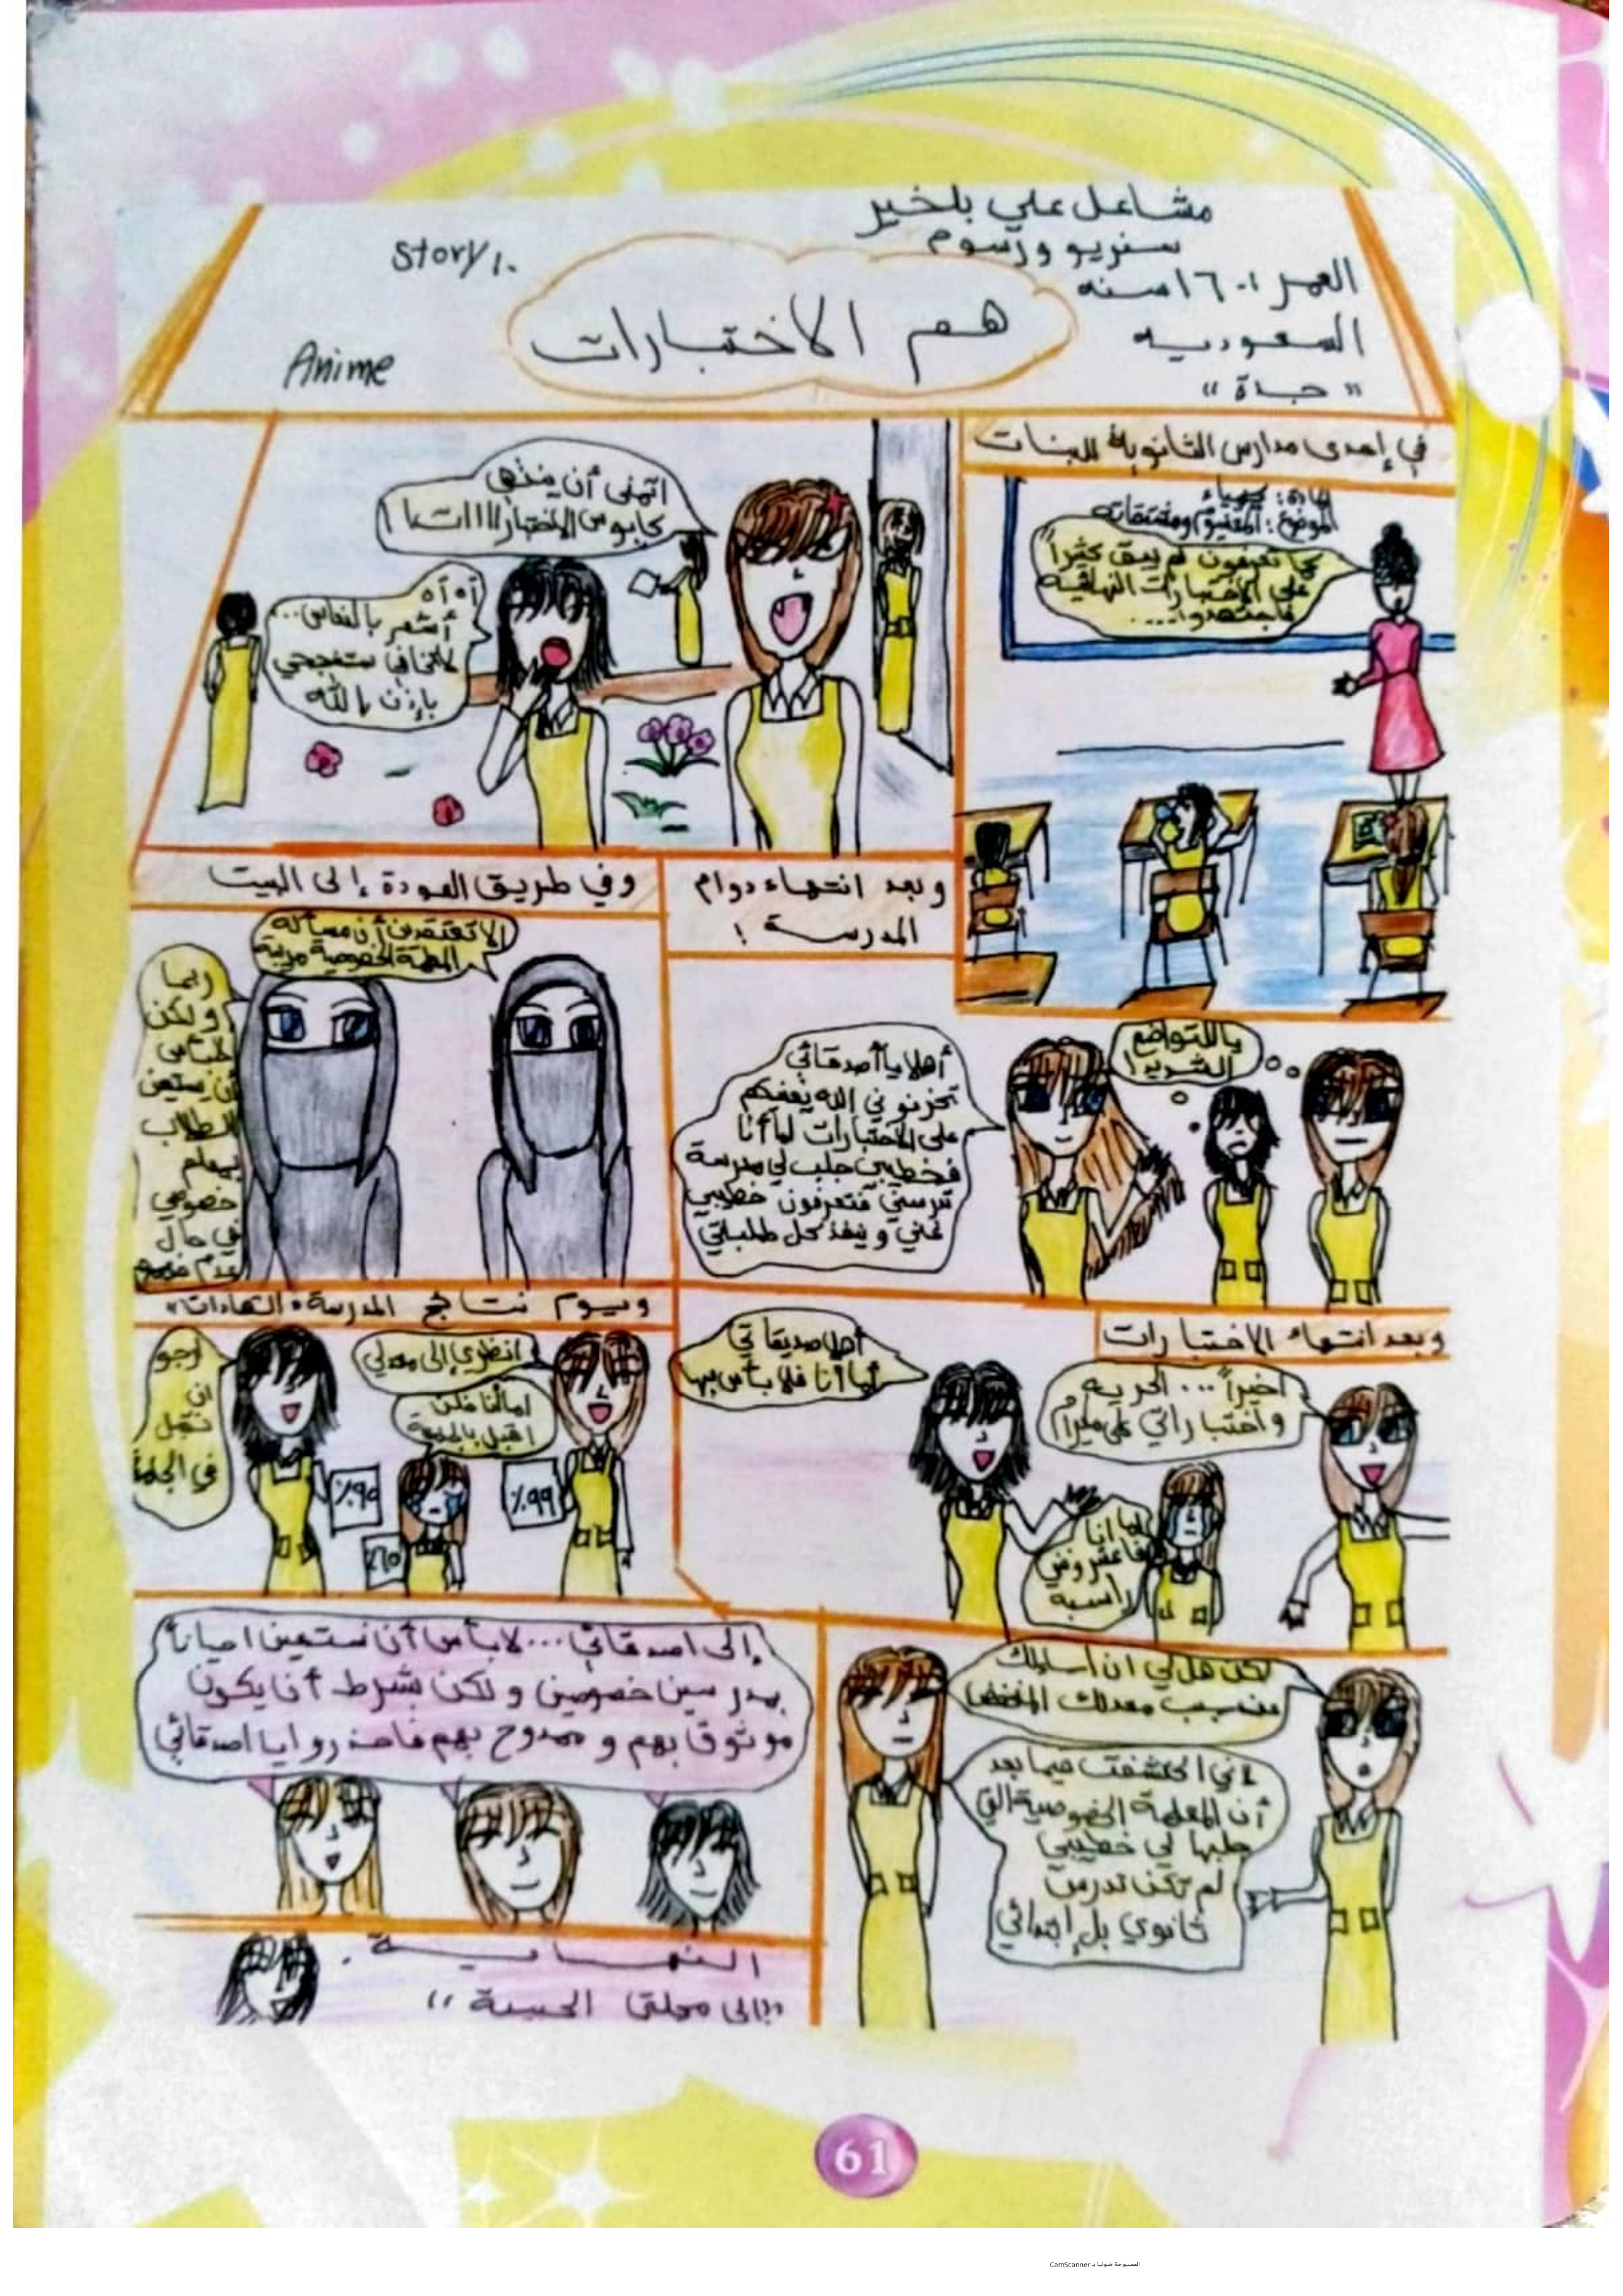 مشاعل علي بلخير
سنريو ورسوم
العمر :- ١٦ سنه
السعوديه
"جدة"
Story 1.
Anime
هم الاختبارات
في إحدى مدارس الثانوية للبنات
المادة: كيمياء
الموضوع: المغنيوم ومشتقاته
كما تعرفون لم يبق كثيراً
على الاختبارات النهائيه
فاجتهدوا....
اتمنى أن ينتهي
كابوس الاختباراااات!
آه آه
أشعر بالنعاس...
لاتخافي ستنجحي
بإذن الله
وبعد انتهاء دوام
المدرسة !
ياللتواضع
الشديد!
أهلا يا أصدقائي
تحزنوني الله يعينكم
على الاختبارات اما أنا
فخطيبي جلب لي مدرسة
تدرسني فتعرفون خطيبي
غني وينفذ كل طلباتي
وفي طريق العودة إلى البيت
الا تعتقدين أن مسألة
المعلمة الخصوصية مريبة
ربما
ولكن
لابأس
أن يستعين
الطلاب
بمعلم
خصوصي
في حال
عدم فهمهم
وبعد انتهاء الاختبارات
اخيراً... الحريه
واختباراتي على مايرام
أهلا صديقاتي
أما أنا فلا بأس بها
اما انا
راسبه
ويوم نتائج المدرسة "الشهادات"
انظري إلى معدلي
اما أنا فلن
اقبل بالجامعة
ارجو
ان
نقبل
في الجامعة
٩٩٪
٩٥٪
٦٥٪
لكن هل لي ان اسألك
عن سبب معدلك المنخفض
لأني اكتشفت فيما بعد
أن المعلمة الخصوصية التي
جلبها لي خطيبي
لم تكن تدرس
ثانوي بل إبتدائي
إلى اصدقائي... لابأس أن نستعين احياناً
بمدرسين خصوصين ولكن بشرط أن يكون
موثوق بهم وممدوح بهم فاحذروا يا اصدقائي
النهايــة.
"إلى مجلتي الحبيبة"
61
الممسوحة ضوئيا بـ CamScanner